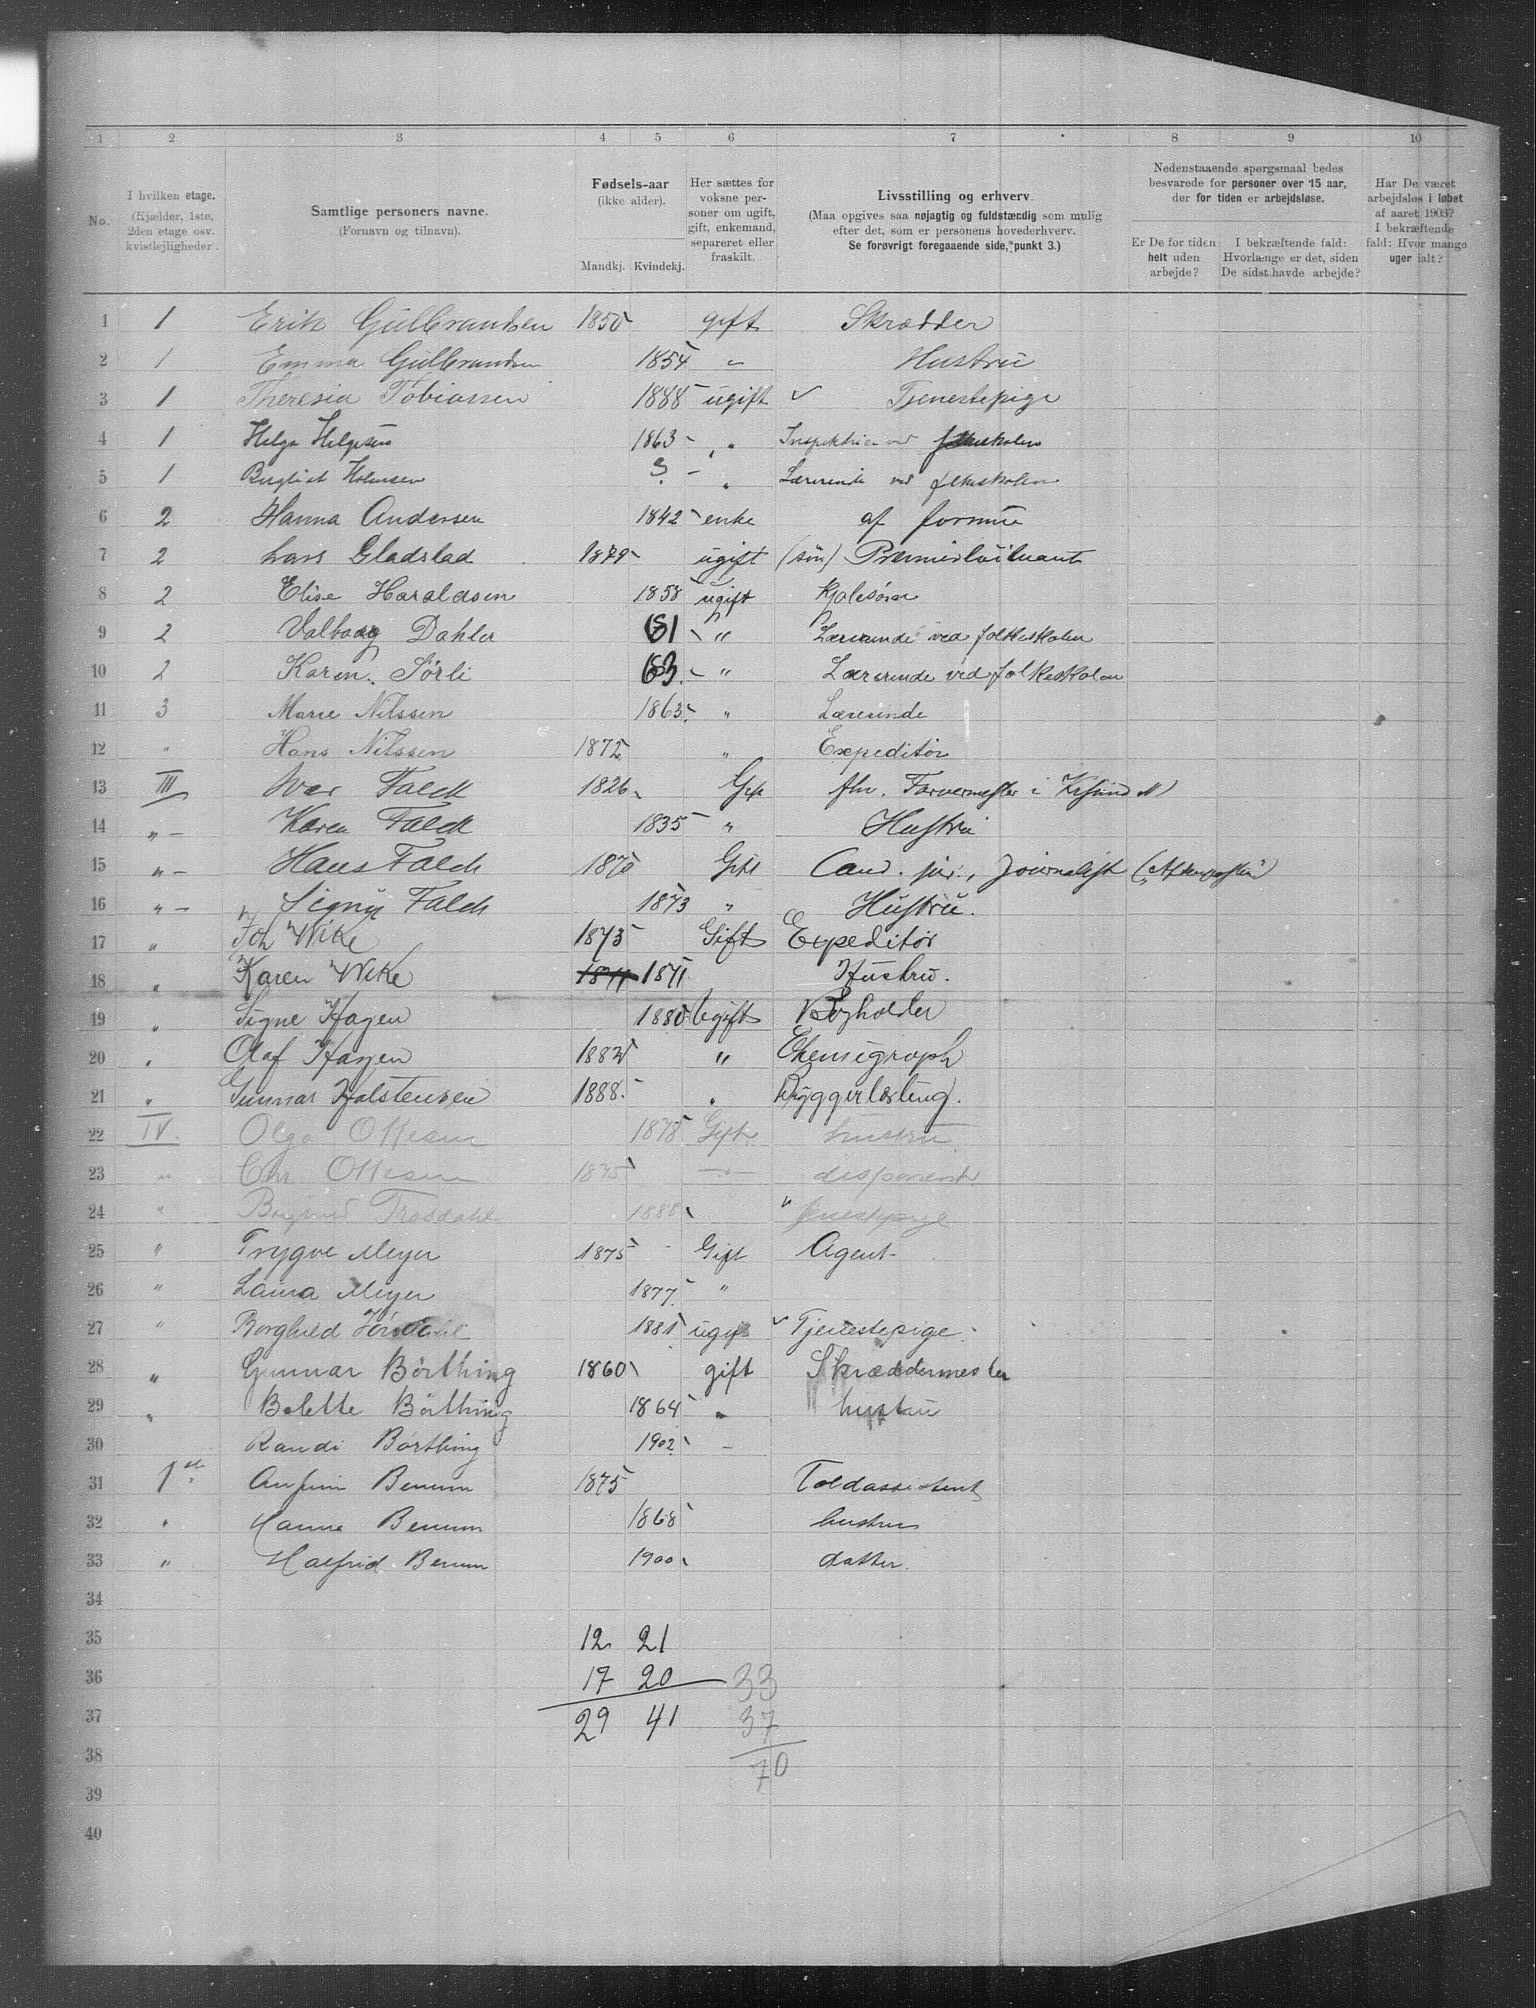 1 2 3 4 5 6 7 8 9 10
No.
I hvilken etage. (Kjælder, 1ste, 2den etage osv. kvistlejligheder.
Samtlige personers navne. (Fornavn og tilnavn).
Fødsels-aar (ikke alder). Mandkj. Kvindekj.
Her sættes for voksne personer om ugift, gift, enkemand, separeret eller fraskilt.
Livsstilling og erhverv. (Maa opgives saa nøjagtig og fuldstændig som mulig efter det, som er personens hovederhverv. Se forøvrigt foregaaende side, punkt 3.)
Nedenstaaende spørgsmaal bedes besvarede for personer over 15 aar, der for tiden er arbejdsløse.
Er De for tiden helt uden arbejde?
I bekræftende fald: Hvorlænge er det, siden De sidst havde arbejde?
Har De været arbejdsløs i løbet af aaret 1903? I bekræftende fald: Hvor mange uger ialt?
1 1 Erik Gulbrandsen 1850 gift Skrædder
2 1 Emma Gulbrandsen 1854 " Hustru
3 1 Theresia Tobiassen 1888 ugift Tjenestepige
4 1 Helga Helgesen 1863 " ved folkeskolen
5 1 Holmsen ? " Lærerinde ved folkeskolen
6 2 Hanna Andersen 1842 enke af formue
7 2 Lars Gladstad 1879 ugift (søn) Premierløitnant
8 2 Elise Haraldsen 1858 ugift Kjolesøm
9 2 Valborg Dahler 61 " Lærerinde ved folkeskolen
10 2 Karen Sørli 63 " Lærerinde ved folkeskolen
11 3 Marie Nilssen 1863 " Lærerinde
12 " Hans Nilssen 1872 " Expeditør
13 III Iver Falck 1826 Gift fhv. Farvermester i Krsund N
14 " Karen Falck 1835 " Hustru
15 " Hans Falck 1870 Gift Cand. jur., Journalist (Aftenposten)
16 " Signy Falck 1873 " Hustru.
17 " Joh Wike 1873 Gift Expeditør
18 " Karen Wike 1871 1871 Hustru.
19 " Signe Hagen 1880 Ugift Bogholder
20 " Olaf Hagen 1882 " Chemigraph
21 " Gunnar Holstensen 1888 " Bryggerlærling.
22 IV Olga Ottesen 1878 Gift hustru
23 " Chr. Ottesen 1875 " disponent
24 " Trosdahl 1888 " tjenestepige
25 " Trygve Meyer 1875 Gift Agent
26 " Laura Meyer 1877 "
27 " Borghild 1881 ugift Tjenestepige
28 " Gunnar Børthing 1860 gift Skræddermester
29 " Bolette Børthing 1864 " hustru
30 Randi Børthing 1902 -
31 1ste Benum 1875 Toldassistent
32 " Hanna Benum 1868 hustru
33 " Halfrid Benum 1900 datter.
34
35 12 21
36 17 20 33
37 29 41 37
38 70
39
40